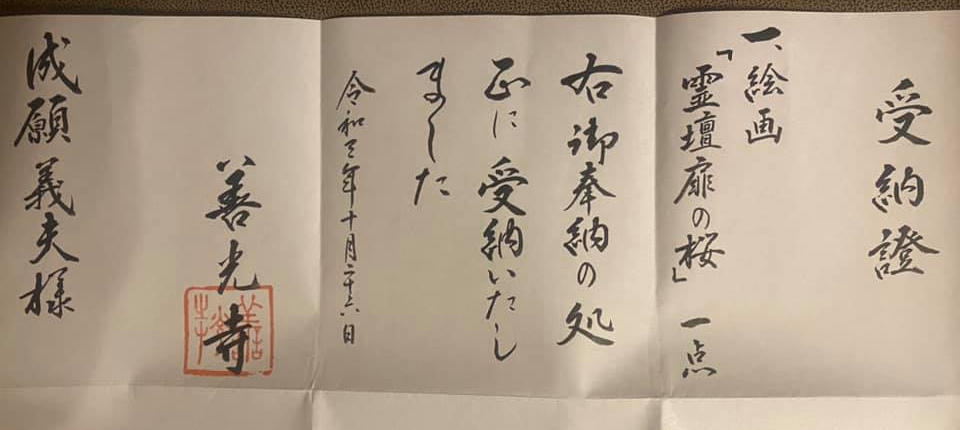 受納證
一、絵画
「霊壇扉の桜」 一点
右御奉納の処
正に受納いたし
ました
令和三年十月二十六日
善光寺
成願義夫様